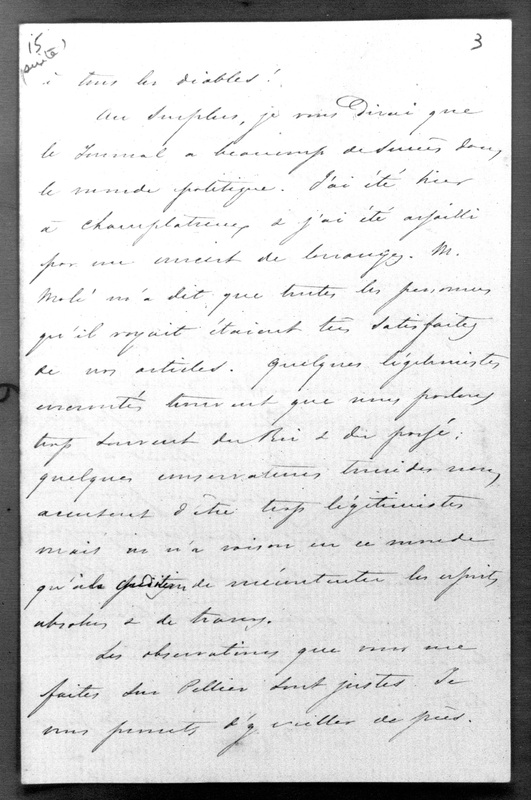 15
(suite)
3
à tous les diables !
Au surplus, je vous Dirai que
le Journal a beaucoup de succès dans
le monde politique. J'ai été hier
à Champlatreux & j'ai été assailli
par un concert de louanges. M.
Molé m'a dit que toutes les personnes
qu'il voyait étaient très satisfaites
de nos articles. Quelques légitimistes
encroûtés trouvent que nous parlons
trop souvent du Roi & du passé ;
quelques conservateurs timides nous
accusent d'être trop légitimistes
mais on n'a raison en ce monde
qu'à la condition de mécontenter les esprits
absolus & de travers.
Les observations que vous me
faites sur Pellier sont justes. Je
vous promets d'y veiller de près.